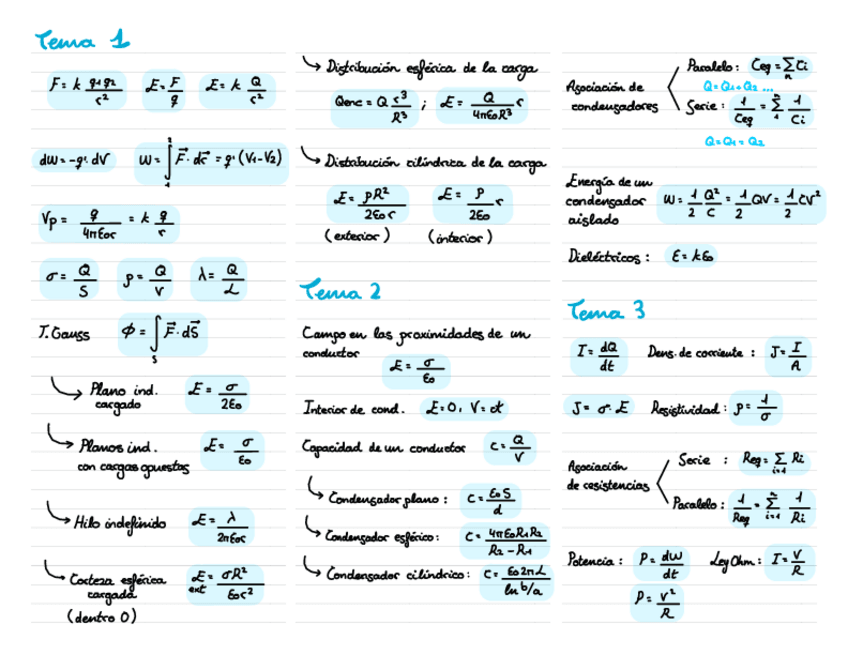 Tema 1
F = k q₁q₂/r² E = F/q E = k Q/r²
dW = -q·dV W = ∫₁² F⃗·dr⃗ = q·(V₁-V₂)
Vp = q/4πε₀r = k q/r
σ = Q/S ρ = Q/V λ = Q/L
T. Gauss Φ = ∫ₛ F⃗·dS⃗
Plano ind. cargado E = σ/2ε₀
Planos ind. con cargas opuestas E = σ/ε₀
Hilo indefinido E = λ/2πε₀r
Corteza esférica cargada E ext = σR²/ε₀r²
(dentro 0)
Distribución esférica de la carga
Qenc = Q r³/R³ ; E = Q/4πε₀R³ r
Distribución cilíndrica de la carga
E = ρR²/2ε₀r E = ρ/2ε₀ r
(exterior) (interior)
Tema 2
Campo en las proximidades de un
conductor
E = σ/ε₀
Interior de cond. E=0, V=ct
Capacidad de un conductor C = Q/V
Condensador plano : C = ε₀S/d
Condensador esférico: C = 4πε₀R₁R₂/R₂-R₁
Condensador cilíndrico: C = ε₀2πL/ln b/a
Asociación de
condensadores
Paralelo : Ceq = ∑ₙ Ci
Q = Q₁+Q₂ ...
Serie : 1/Ceq = ∑ 1/Ci
Q = Q₁ = Q₂
Energía de un
condensador
aislado
W = 1/2 Q²/C = 1/2 QV = 1/2 CV²
Dieléctricos : ε = kε₀
Tema 3
I = dQ/dt Dens. de corriente : J = I/A
J = σ·E Resistividad : ρ = 1/σ
Asociación
de resistencias
Serie : Req = ∑ᵢ₌₁ Ri
Paralelo : 1/Req = ∑ⁿᵢ₌₁ 1/Ri
Potencia : P = dW/dt Ley Ohm : I = V/R
P = V²/R